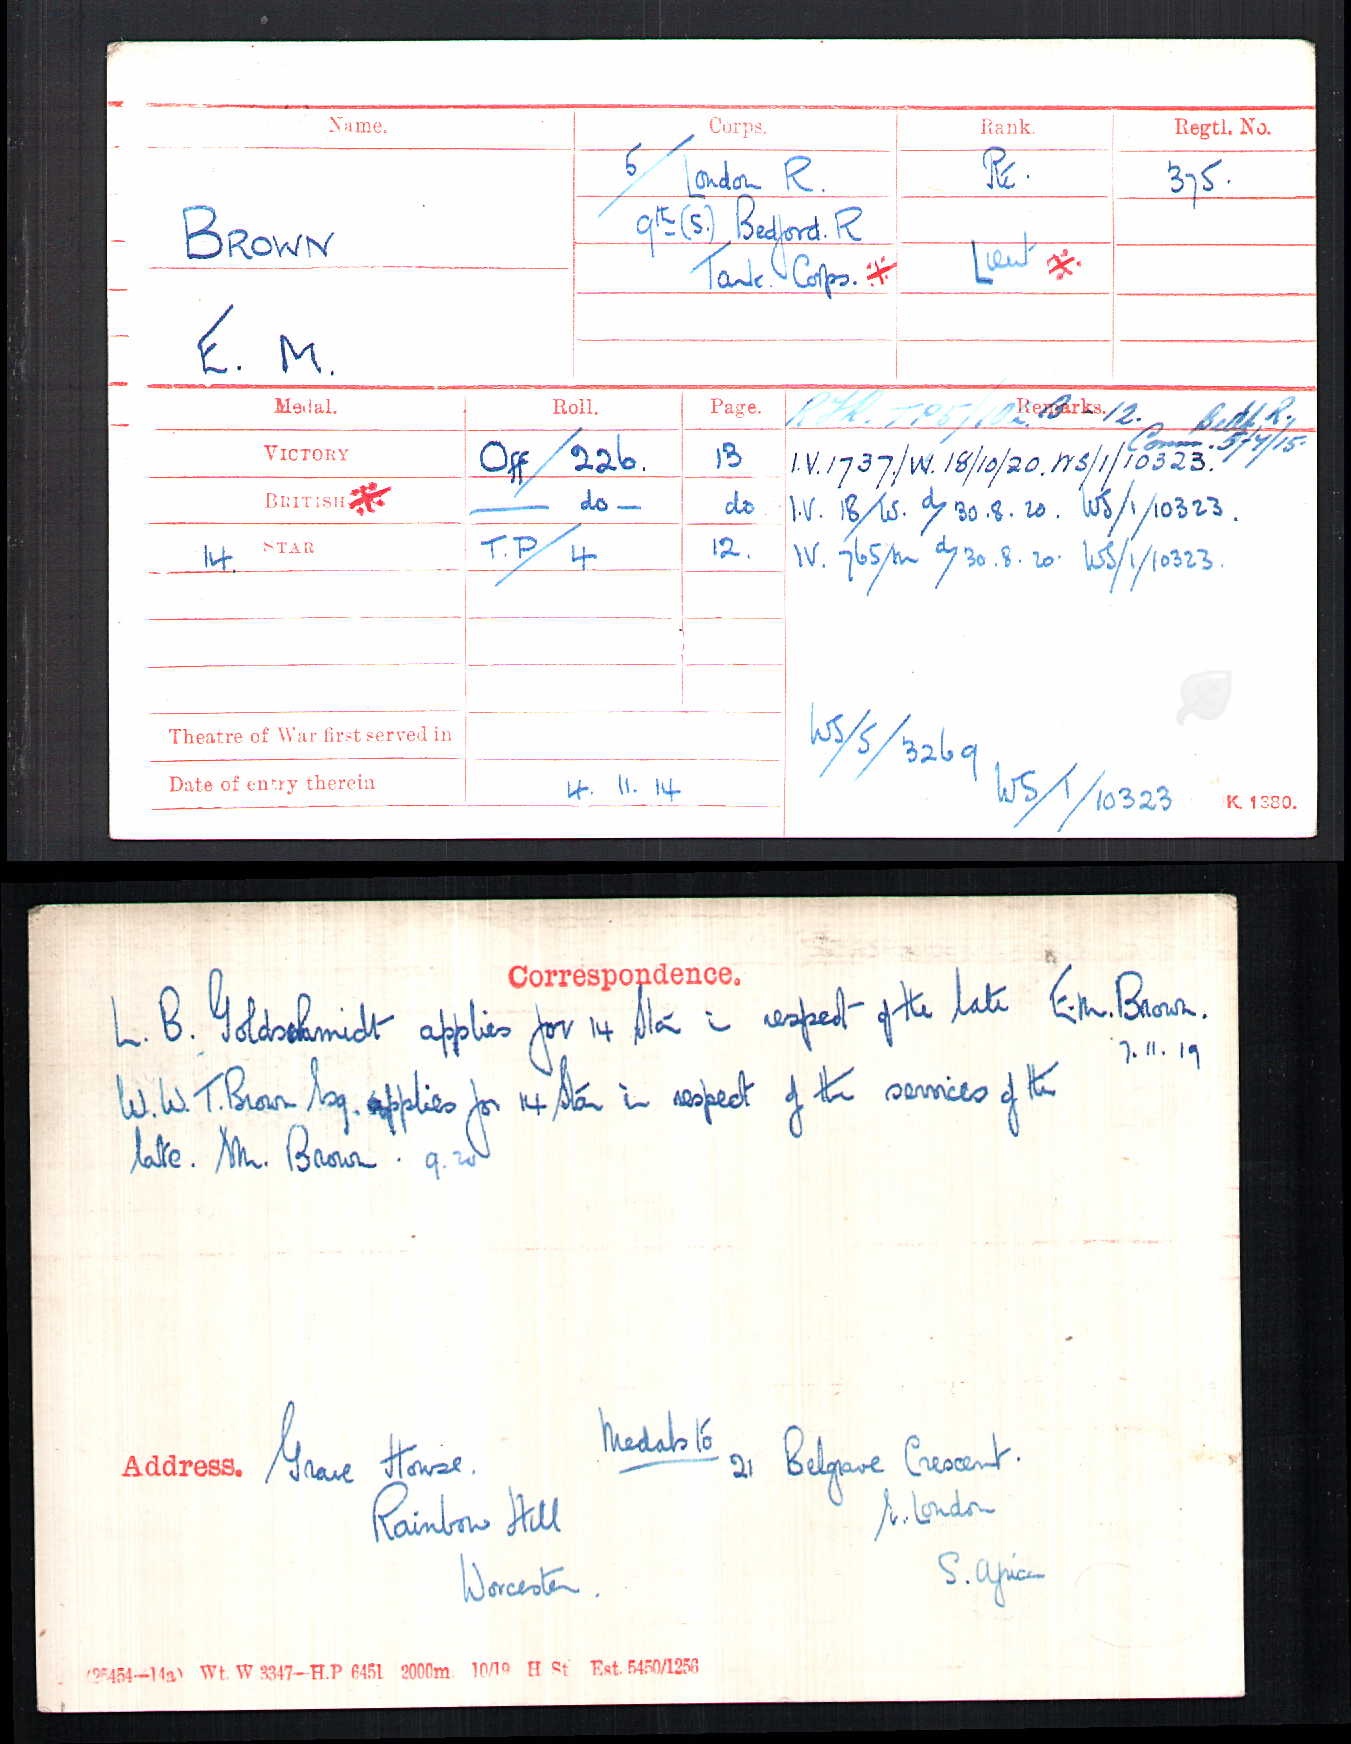 Name. Corps. Rank. Regtl. No.
5/London R. Pte. 375.
9th (S.) Bedford. R
BROWN
Tank. Corps. * Lieut *.
E. M.
Medal. Roll. Page. Remarks.
B - 12. Bedf. R.
Comm. 5/4/15.
VICTORY Off/226. 13 I.V. 1737/W. 18/10/20. WS/1/10323.
BRITISH * — do — do I.V. 18/W. d/ 30.8.20. WS/1/10323.
14. STAR T.P/4 12. IV. 765/m d/ 30.8.20. WS/1/10323.
WS/5/3269
Theatre of War first served in
Date of entry therein 4. 11. 14 WS/1/10323 K. 1380.
Correspondence.
L. B. Goldschmidt applies for 14 Star in respect of the late E.M. Brown.
7. 11. 19
W.W.T. Brown Esq. applies for 14 Star in respect of the services of the
late. E.M. Brown. 9.20
Address. Grave House. Medals to 21 Belgrave Crescent.
Rainbow Hill E. London
Worcester. S. Africa
(25454—14a) Wt. W 3347—H.P 6451 2000m 10/19 H St Est. 5450/1256